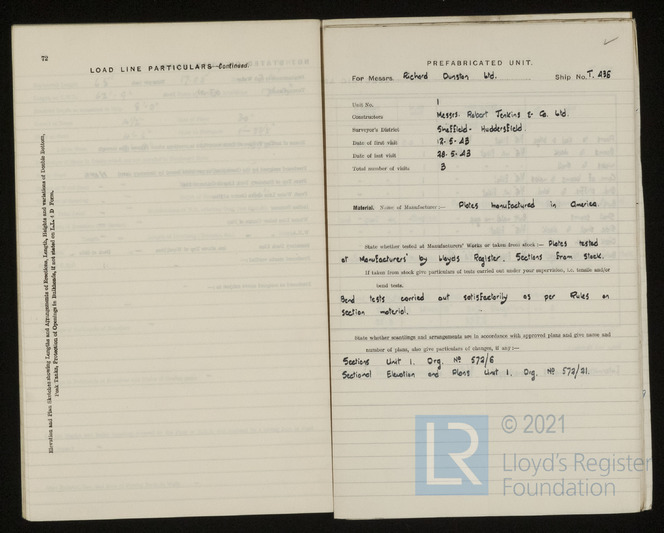 72
LOAD LINE PARTICULARS—Continued.
Elevation and Plan Sketches showing Lengths and Arrangements of Erections, Length, Heights and variations of Double Bottom,
Peak Tanks, Protection of Openings in Bulkheads, if not stated on L.L. 1 D Form.
PREFABRICATED UNIT.
For Messrs. Richard Dunston Ltd. Ship No. T. 436
Unit No. 1
Constructors Messrs. Robert Jenkins & Co. Ltd.
Surveyor's District Sheffield - Huddersfield.
Date of first visit 12-5-43
Date of last visit 28-5-43
Total number of visits 3
Material. Name of Manufacturer:— Plates manufactured in America.
State whether tested at Manufacturers' Works or taken from stock:— Plates tested
at Manufacturers' by Lloyds Register. Sections from stock.
If taken from stock give particulars of tests carried out under your supervision, i.e. tensile and/or
bend tests.
Bend tests carried out satisfactorily as per Rules on
section material.
State whether scantlings and arrangements are in accordance with approved plans and give name and
number of plans, also give particulars of changes, if any:—
Sections Unit 1. Drg. Nº 572/6
Sectional Elevation and Plans Unit 1. Drg. Nº 572/21.
LR
© 2021
Lloyd's Register
Foundation